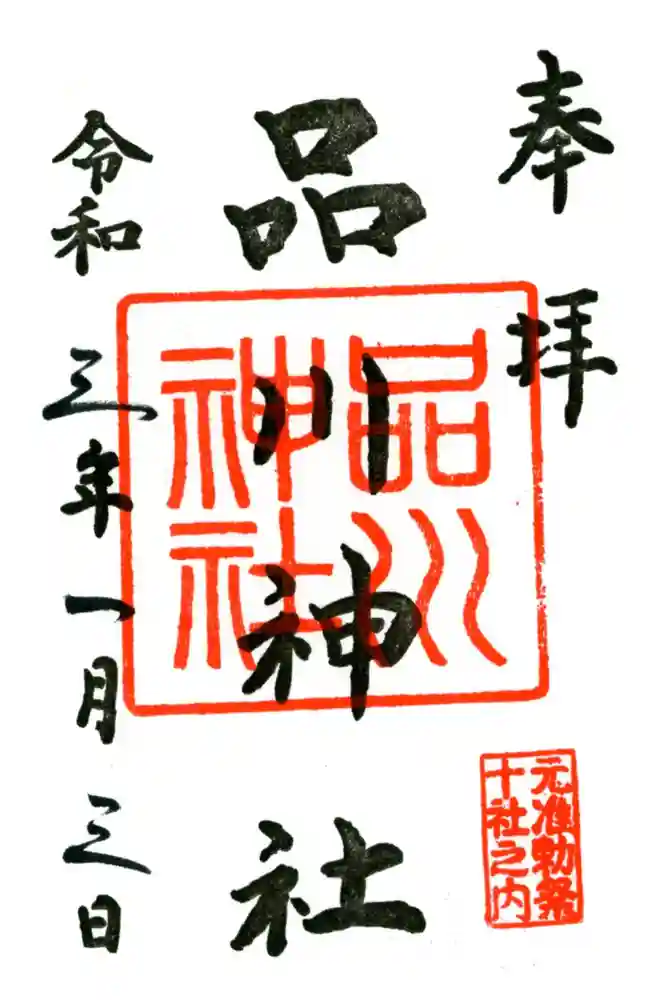 奉拝
品川神社
令和三年一月三日
品川
神社
元准勅祭
十社之内